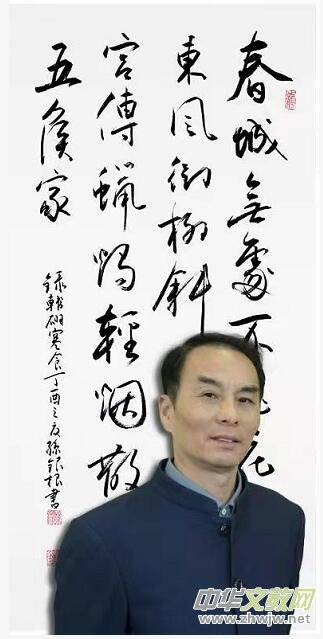 春城無處不
東風御柳斜
宮傳蠟燭輕烟散
五侯家
錄韓翃寒食丁酉之夏孫銀根書
中华文教网
www.zhwjw.net